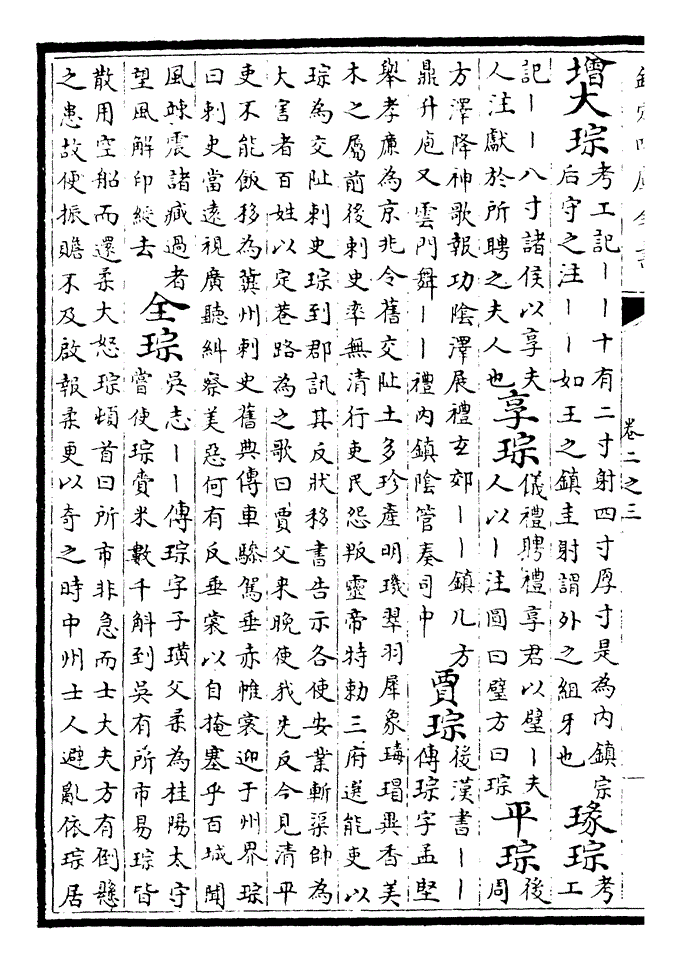 欽定四庫全書 卷二之三
增大琮 考工記丨丨十有二寸射四寸厚寸是為内鎮宗后守之注丨丨如王之鎮圭射謂外之組牙也 瑑琮 考工
記丨丨八寸諸侯以享夫人注獻於所聘之夫人也 享琮 儀禮聘禮享君以璧丨夫人以丨注圓曰璧方曰琮 平琮 後周
方澤降神歌報功陰澤展禮玄郊丨丨鎮几方鼎升庖又雲門舞丨丨禮内鎮陰管奏司中 賈琮 後漢書丨丨傳琮字孟堅
舉孝廉為京兆令舊交阯土多珍產明璣翠羽犀象瑇瑁異香美
木之屬前後刺史率無清行吏民怨叛靈帝特勅三府選能吏以
琮為交阯刺史琮到郡訊其反狀移書告示各使安業斬渠帥為
大害者百姓以定巷路為之歌曰賈父來晚使我先反今見清平
吏不能飯移為冀州刺史舊典傳車驂駕垂赤帷裳迎于州界琮
曰刺史當遠視廣聽糾察美惡何有反垂裳以自掩塞乎百城聞
風竦震諸臧過者望風解印綬去 全琮 吳志丨丨傳琮字子璜父柔為桂陽太守嘗使琮賫米數千斛到吳有所市易琮皆
散用空船而還柔大怒琮頓首曰所市非急而士大夫方有倒懸
之患故便振贍不及啟報柔更以奇之時中州士人避亂依琮居